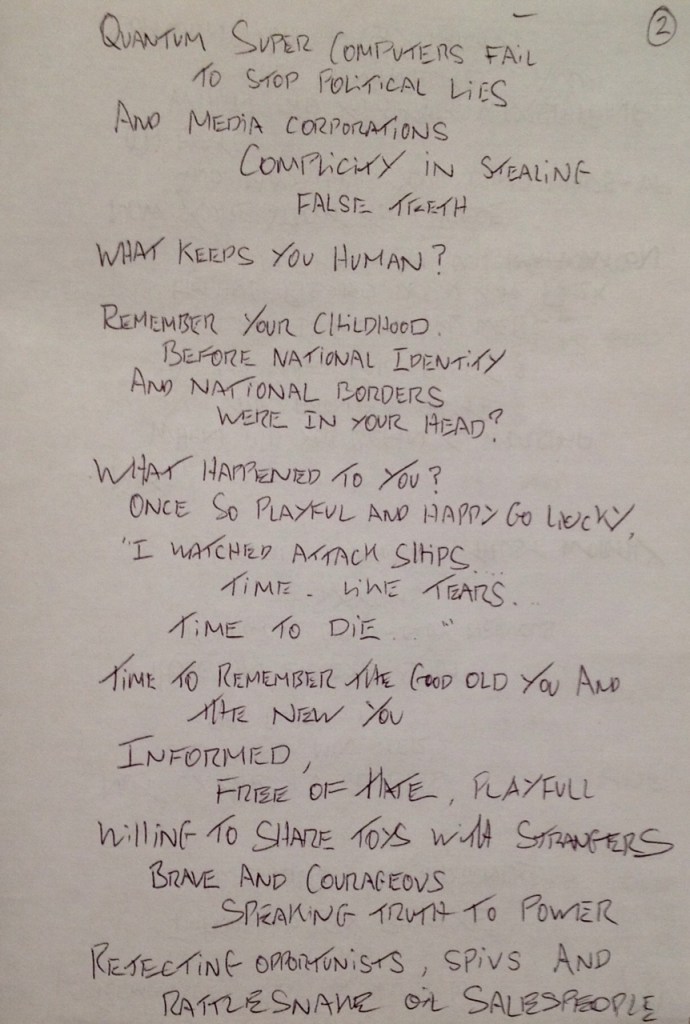 2
QUANTUM SUPER COMPUTERS FAIL
TO STOP POLITICAL LIES
AND MEDIA CORPORATIONS
COMPLICITY IN STEALING
FALSE TEETH
WHAT KEEPS YOU HUMAN?
REMEMBER YOUR CHILDHOOD.
BEFORE NATIONAL IDENTITY
AND NATIONAL BORDERS
WERE IN YOUR HEAD?
WHAT HAPPENED TO YOU?
ONCE SO PLAYFUL AND HAPPY GO LUCKY,
"I WATCHED ATTACK SHIPS....
TIME. LIKE TEARS...
TIME TO DIE...."
TIME TO REMEMBER THE GOOD OLD YOU AND
THE NEW YOU
INFORMED,
FREE OF HATE, PLAYFULL
WILLING TO SHARE TOYS WITH STRANGERS
BRAVE AND COURAGEOUS
SPEAKING TRUTH TO POWER
REJECTING OPPORTUNISTS, SPIVS AND
RATTLESNAKE OIL SALESPEOPLE